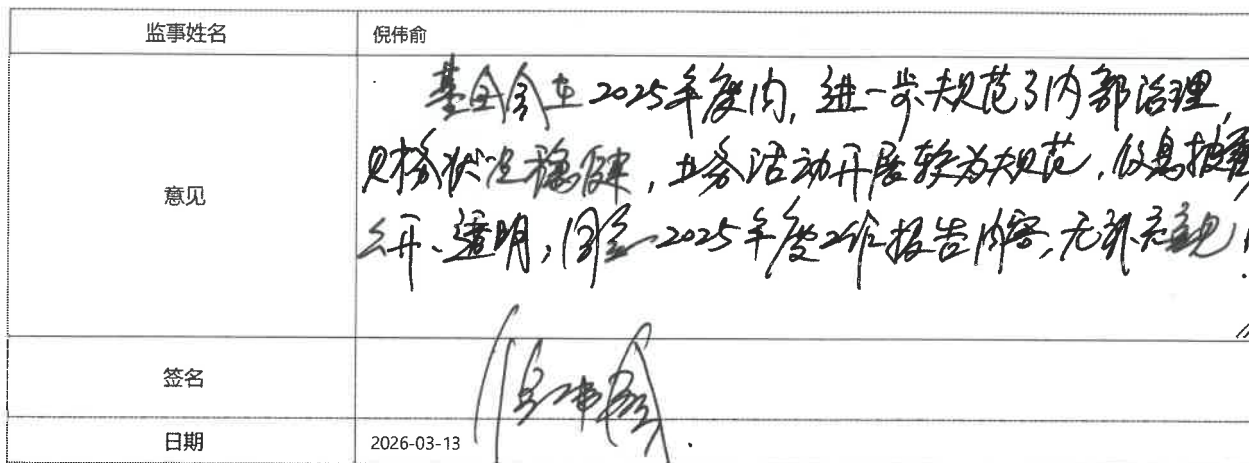 监事姓名
倪伟俞
意见
基金会在2025年度内,进一步规范了内部治理,
财务状况稳健,业务活动开展较为规范,信息披露
公开、透明,同意2025年度工作报告内容,无补充意见
签名
倪伟俞
日期
2026-03-13